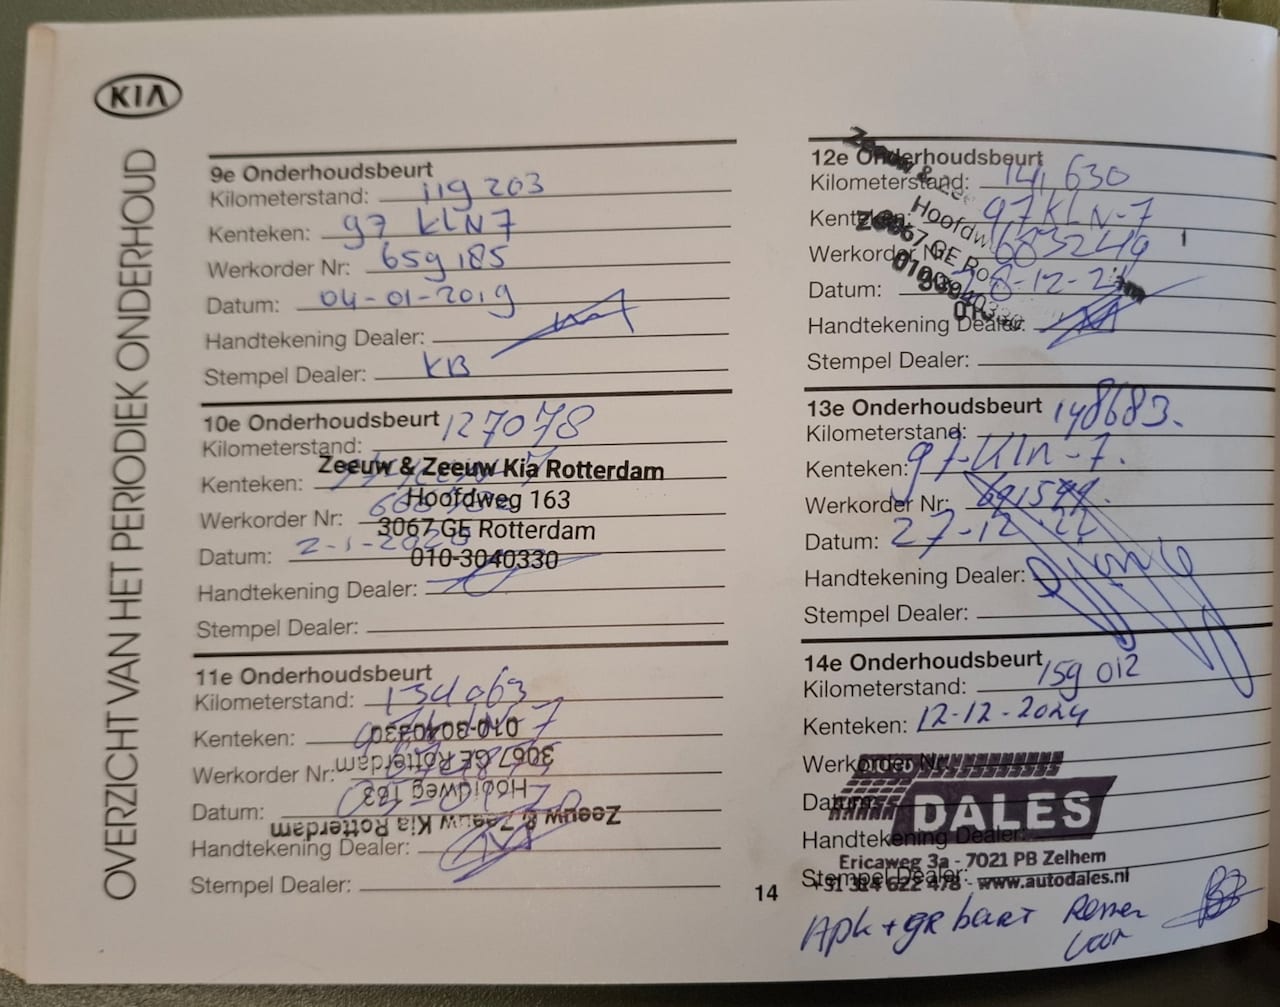 KIA
OVERZICHT VAN HET PERIODIEK ONDERHOUD
9e Onderhoudsbeurt
Kilometerstand: 119 203
Kenteken: 97 KLN 7
Werkorder Nr: 659 185
Datum: 04-01-2019
Handtekening Dealer:
Stempel Dealer: KB
10e Onderhoudsbeurt
Kilometerstand: 127078
Kenteken:
Werkorder Nr:
Datum: 2-1-2020
Handtekening Dealer:
Stempel Dealer:
Zeeuw & Zeeuw Kia Rotterdam
Hoofdweg 163
3067 GE Rotterdam
010-3040330
11e Onderhoudsbeurt
Kilometerstand:
Kenteken:
Werkorder Nr:
Datum:
Handtekening Dealer:
Stempel Dealer:
Zeeuw & Zeeuw Kia Rotterdam
Hoofdweg 163
3067 GE Rotterdam
010-3040330
12e Onderhoudsbeurt
Kilometerstand: 141 630
Kenteken: 97 KLN-7
Werkorder Nr: 683249
Datum: 28-12-21
Handtekening Dealer:
Stempel Dealer:
13e Onderhoudsbeurt
Kilometerstand: 148683.
Kenteken: 97-Kln-7.
Werkorder Nr: 691599.
Datum: 27-12-22
Handtekening Dealer:
Stempel Dealer:
14e Onderhoudsbeurt
Kilometerstand: 159 012
Kenteken: 12-12-2024
Werkorder Nr:
Datum:
Handtekening Dealer:
Stempel Dealer:
DALES
Ericaweg 3a - 7021 PB Zelhem
+31 314 622 478 - www.autodales.nl
Apk + gr beurt Remmen
voor
14